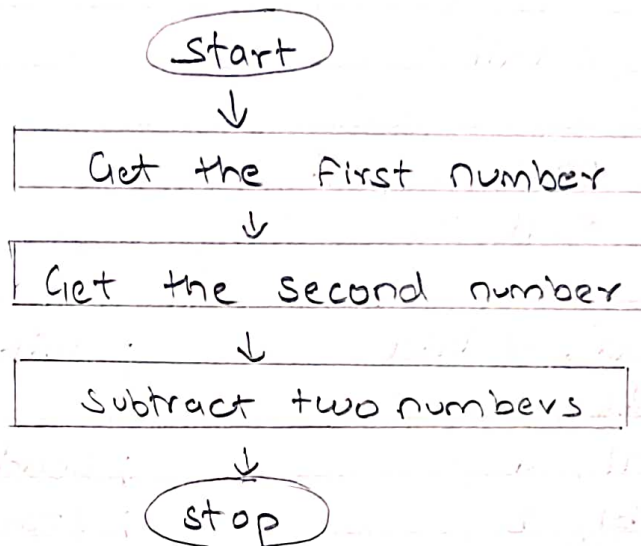 Start
Get the first number
Get the second number
subtract two numbers
stop